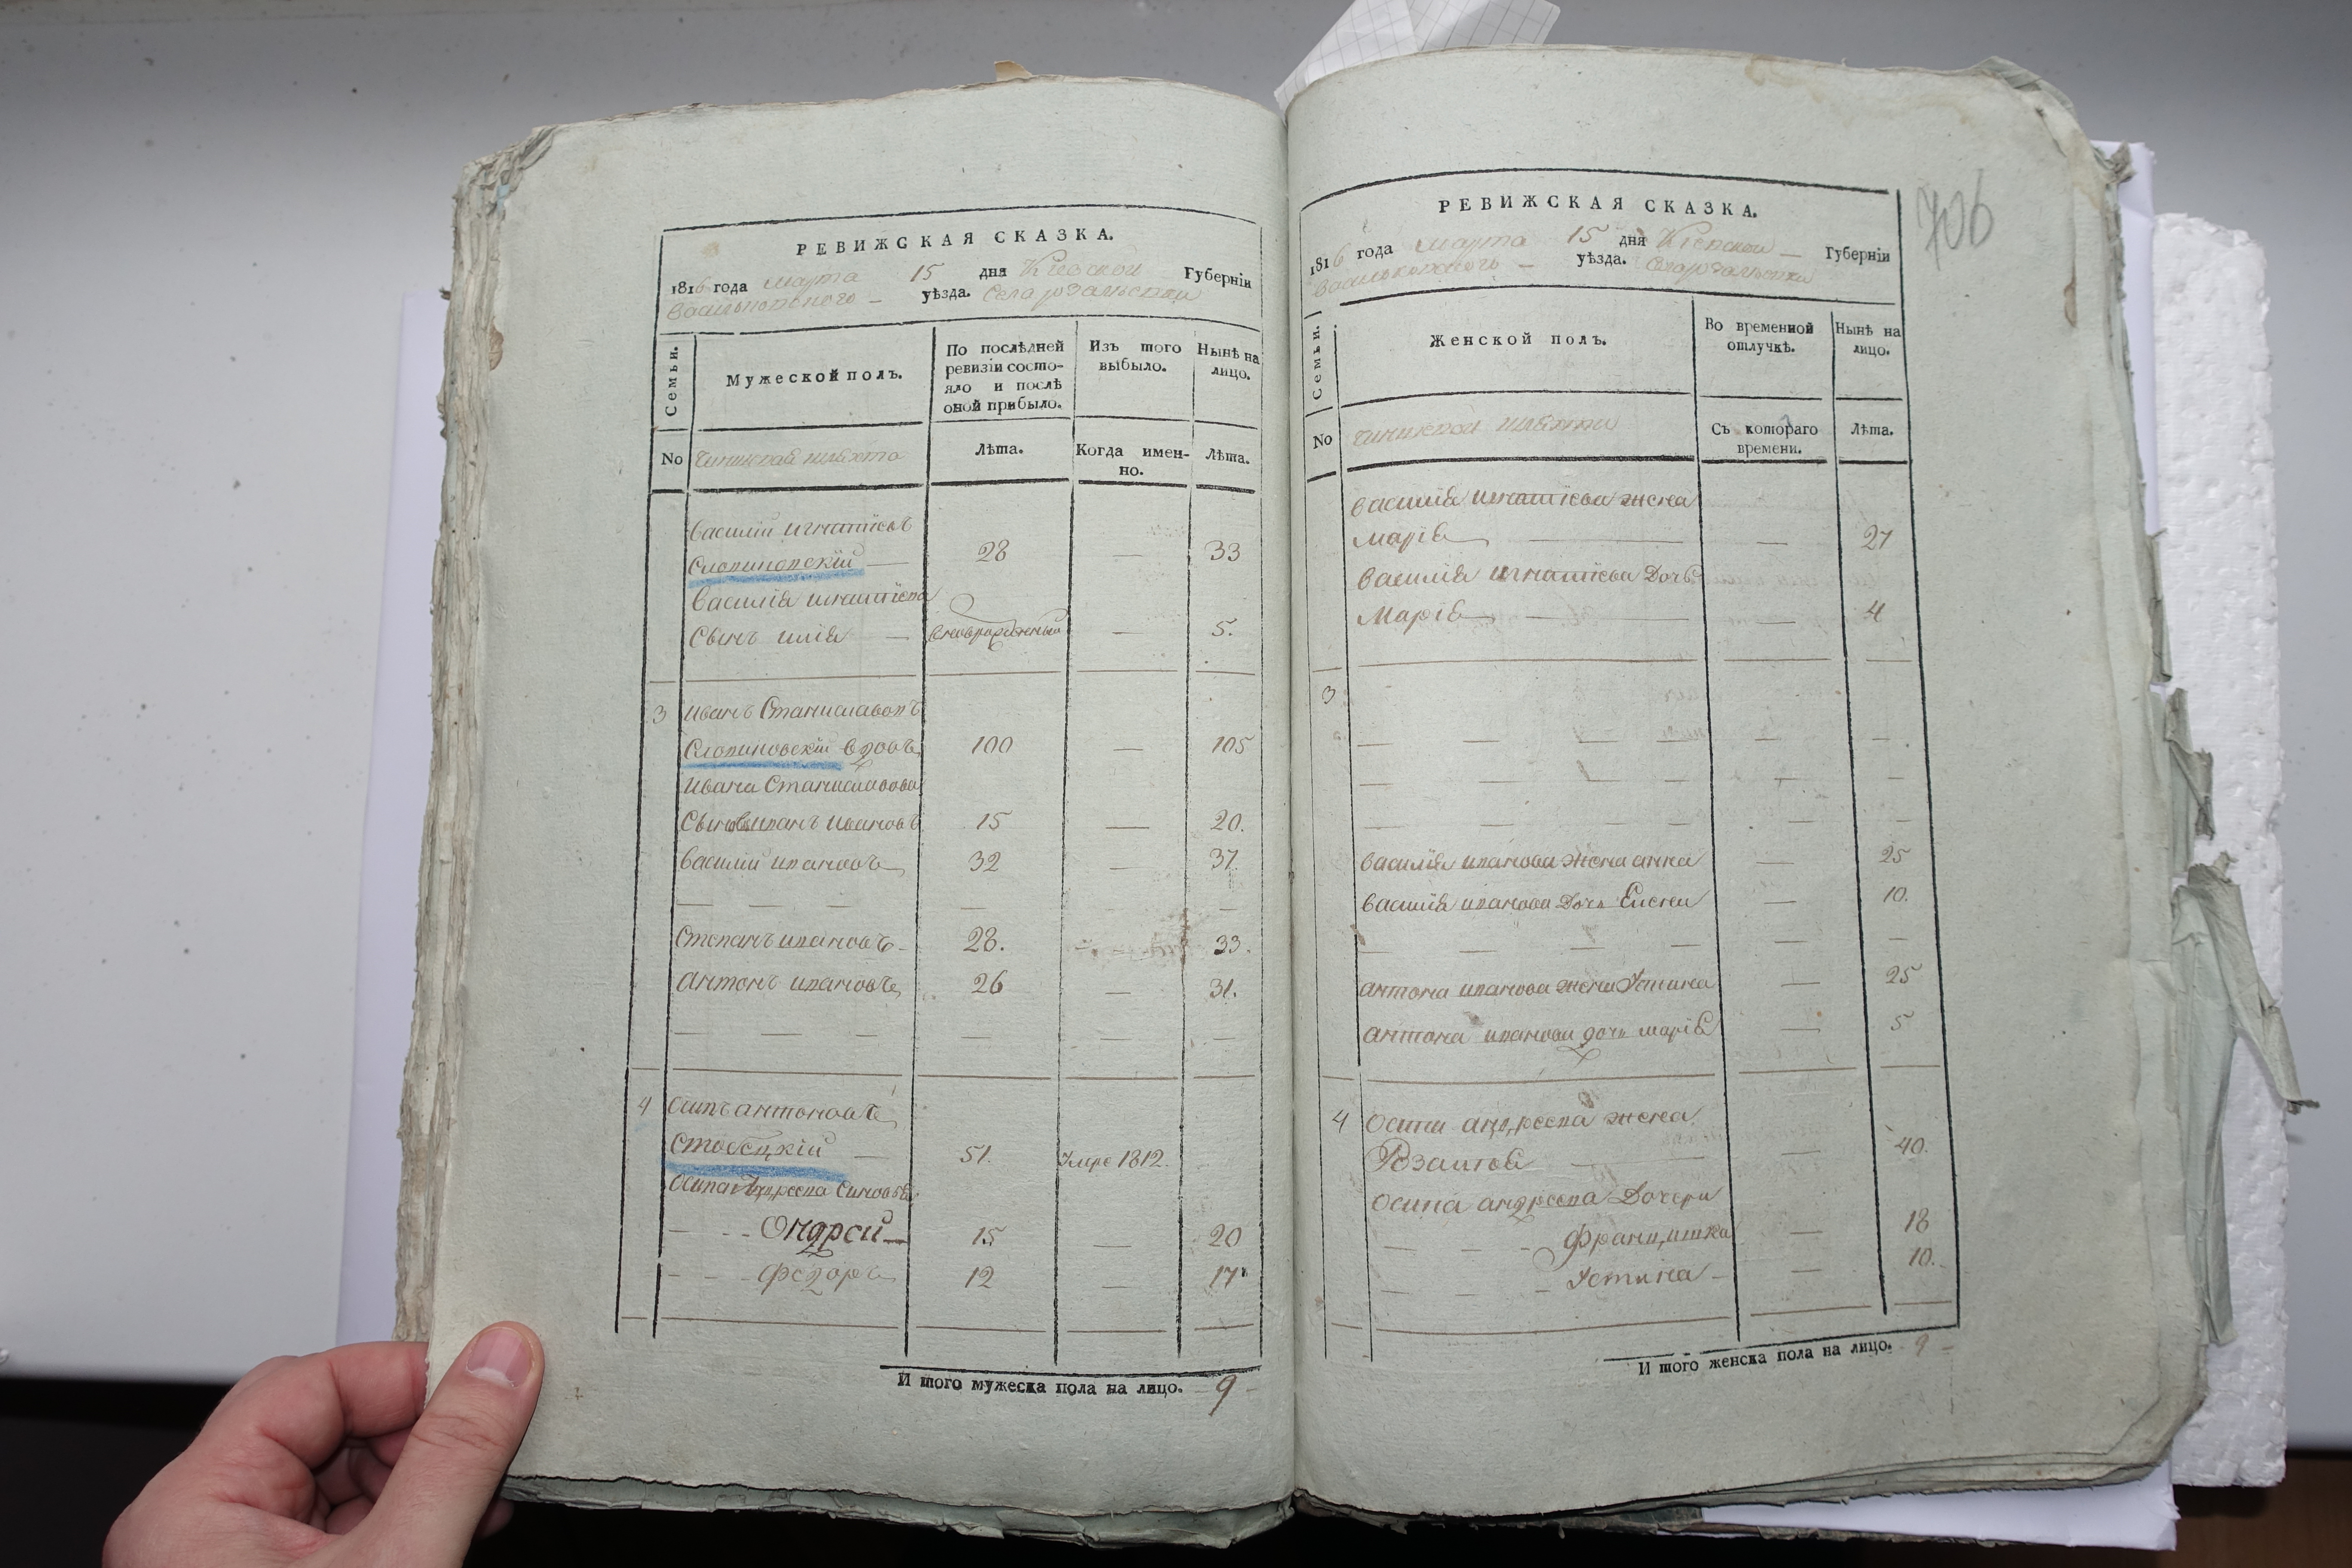 РЕВИЖСКАЯ СКАЗКА.
1816 года марта 15 дня Кіевской Губерніи
Васильковского уѣзда. Села
Семьи.
Мужеской полъ.
По послѣдней ревизіи состо-
яло и послѣ
оной прибыло.
Изъ того выбыло.
Нынѣ на лицо.
No чиншевая шляхта
Лѣта.
Когда имен-
но.
Лѣта.
Василій игнатіевъ
Слопиновскій — 28 — 33
Василія игнатіева
Сынъ илія — — 5.
3 иванъ Станиславовъ
Слопиновскій вдовъ 100 — 105
ивана Станиславова
иванъ ивановъ 15 — 20.
василій ивановъ 32 — 37.
— — — — —
Степанъ ивановъ 28. — 33.
антонъ ивановъ 26 — 31.
— — — — —
4 антоновъ
51. умре 1812.
— — - Ондрей 15 — 20
— — - федоръ 12 — 17
И того мужеска пола на лицо. 9
706
РЕВИЖСКАЯ СКАЗКА.
1816 года марта 15 дня Кіевской Губерніи
Васильковского уѣзда. Села
Семьи.
Женской полъ.
Во временной
отлучкѣ.
Нынѣ на
лицо.
No чиншевой шляхты
Съ котораго
времени.
Лѣта.
василія игнатіева жена
марія — — 27
василія игнатіева Дочь
Марія — — 4
3
— — — — — —
— — — — —
— — — — — —
василія иванова жена анна — 25
василія иванова Дочь — 10.
— — — — —
антона иванова жена Устина — 25
антона иванова дочь марія — 5
4 осипа андреева жена
Розалія — — 40.
осипа андреева Дочери
— — - францишка — 18
— — - Устина — 10.
И того женска пола на лицо. 9